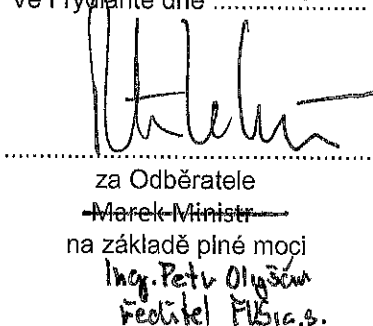 Ve Frýdlantě dne ....................
....................................................
za Odběratele
Marek Ministr
na základě plné moci
Ing. Petr
ředitel a.s.